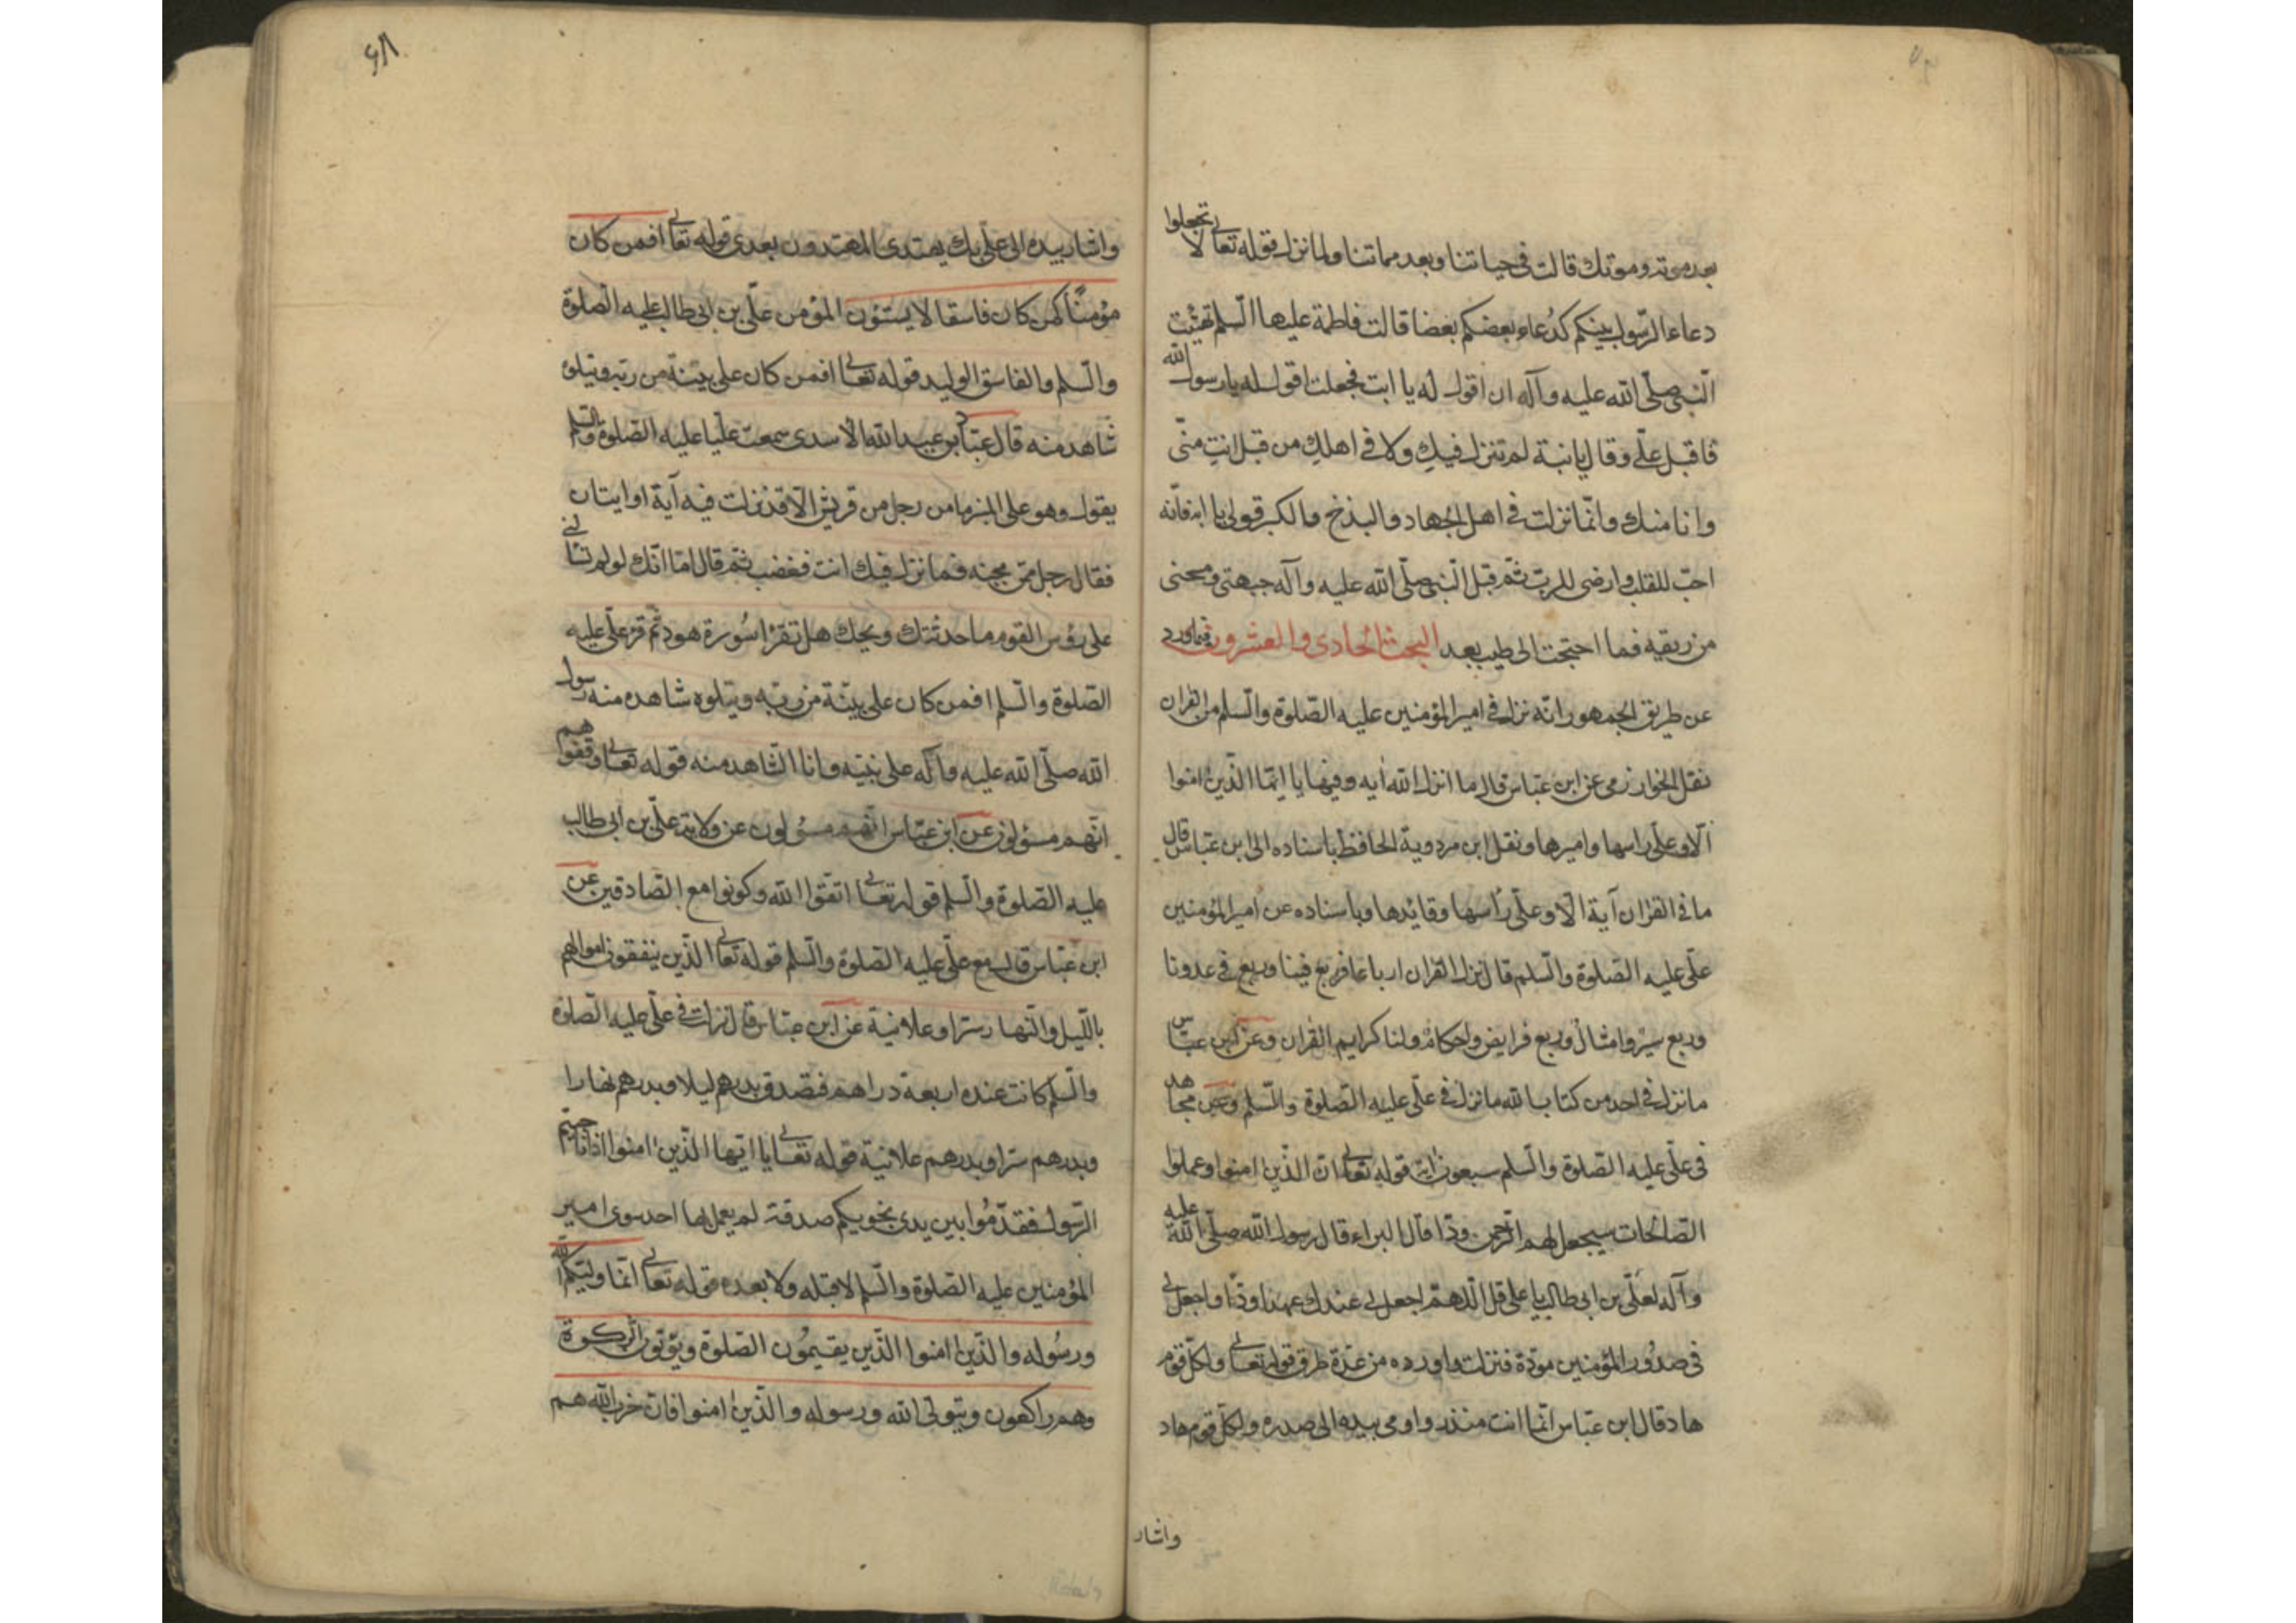 بعد موته وموتك قالت في حياتنا وبعد مماتنا ولما نزل قوله تعالى لا تجعلوا
دعاء الرّسول بينكم كدُعاء بعضكم بعضا قالت فاطمة عليها السّلم تهيّبت
النّبى صلّى الله عليه وآله ان اقول له يا ابت فجعلت اقول له يا رسول الله
فاقبل علىّ وقال يا بنية لم تنزل فيكِ ولا في اهلكِ من قبل انتِ منّى
وانا منك وانّما نزلت في اهل الجهاد والبذخ والكبر قولى يا ابه فانّه
احبّ للقلب وارضى للربّ ثمّ قبل النّبى صلّى الله عليه وآله جبهتى ومسحنى
من ريقيه فما احتجت الى طيب بعد البحث الحادى والعشرون فيما ورد
عن طريق الجمهور انّه نزل في امير المؤمنين عليه الصّلوة والسّلم من القران
نقل الخوارزمى عن ابن عبّاس قال ما انزل الله آيه وفيها يا ايّها الّذين امنوا
الّا وعلى راسها واميرها ونقل ابن مردوية الحافظ باسناده الى ابن عبّاس قال
ما في القران آية الّا وعلىّ رأسها وقائدها وباسناده عن امير المؤمنين
علىّ عليه الصّلوة والسّلم قال نزل القران ارباعا فربع فينا وربع في عدونا
وربع سير وامثال وربع فرايض واحكام ولنا كرايم القران وعن ابن عبّاس
ما نزل في احد من كتاب الله ما نزل في علّى عليه الصّلوة والسّلم وعن مجاهد
في علّى عليه الصّلوة والسّلم سبعون اية قوله تعالى انّ الّذين امنوا وعملوا
الصّالحات سيجعل لهم الرّحمن ودّا قال البراء قال رسول الله صلّى الله عليه
وآله لعلّى بن ابى طالب يا على قل اللّهمّ اجعل لى عندك عهدا ودّا واجعل لى
في صدُور المؤمنين مودّة فنزلت واورده من عدّة طرق قوله تعالى ولكلّ قوم
هاد قال ابن عبّاس انّما انت منذر واومى بيده الى صدره ولكلّ قوم هاد
واشار
٦٨
واشار بيده الى علّى بك يهتدى المهتدون بعدى قوله تعالى افمن كان
مؤمنًا كمن كان فاسقا لا يستؤن المؤمن علّى بن ابى طالب عليه الصّلوة
والسّلم والفاسق الوليد قوله تعالى افمن كان على بيّنة من ربّه ويتلوه
شاهد منه قال عبّاد بن عبد الله الاسدى سمعت عليّا عليه الصّلوة والسّلم
يقول وهو على المنبر ما من رجل من قريش الّا قد نزلت فيه آية او ايتان
فقال رجل ممّن تحته فما نزل فيك انت فغضب ثمّ قال امّا انّك لو لم تسألنى
على رؤس القوم ما حدثتك ويحك هل تقرا سُورة هود ثمّ قرء علّى عليه
الصّلوة والسّلم افمن كان على بيّنة من ربّه ويتلوه شاهد منه رسول
الله صلّى الله عليه وآله على بيّنه وانا الشّاهد منه قوله تعالى وقفوا هم
انّهم مسؤلون عن ابن عبّاس انّهم مسؤلون عن ولاية علّى بن ابى طالب
عليه الصّلوة والسّلم قوله تعالى اتّقوا الله وكونوا مع الصّادقين عن
ابن عبّاس قال مع علّى عليه الصّلوة والسّلم قوله تعالى الّذين ينفقون اموالهم
باللّيل والنّهار سرّا وعلانية عن ابن عبّاس قال نزلت في علّى عليه الصّلوة
والسّلم كانت عنده اربعة دراهم فتصدق بدرهم ليلا وبدرهم نهارا
وبدرهم سرّا وبدرهم علانية قوله تعالى يا ايّها الّذين امنوا اذا ناجيتم
الرّسول فقدّمُوا بين يدى نجويكم صدقة لم يعمل بها احد سوى امير
المؤمنين عليه الصّلوة والسّلم لا قبله ولا بعده قوله تعالى انّما وليّكم الله
ورسُوله والّذين امنوا الّذين يقيمُون الصّلوة ويؤتون الزّكوة
وهم راكعون ويتولّى الله ورسوله والّذين امنوا فانّ حزب الله هم